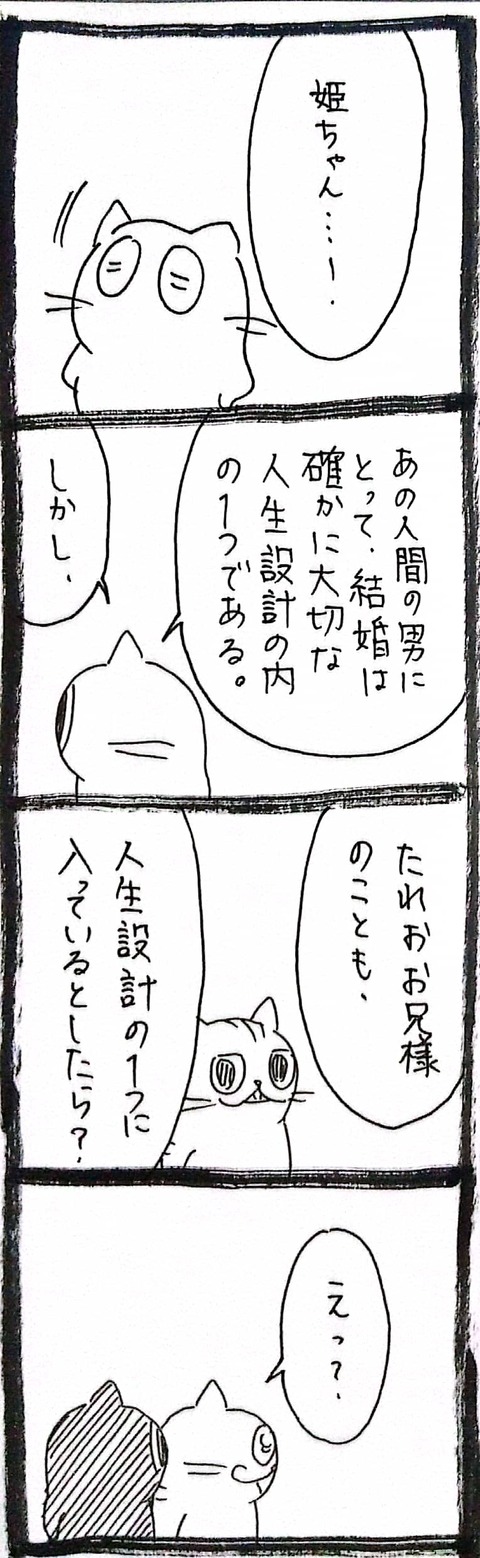 姫ちゃん…ー.
あの人間の男に
とって、結婚は
確かに大切な
人生設計の内
の1つである。
しかし、
たれおお兄様
のことも、
人生設計の1つに
入っているとしたら?
えっ?